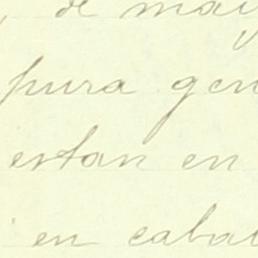 , de may
pura gen
estan en
en cabal